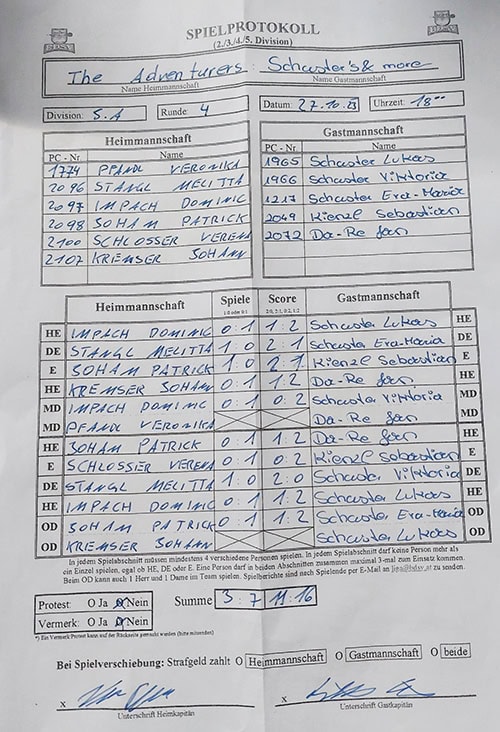 SPIELPROTOKOLL
(2./3./4./5. Division)
The Adventurers : Schuster's & more
Name Heimmannschaft Name Gastmannschaft
Division: 5.A Runde: 4 Datum: 27.10.23 Uhrzeit: 18⁰⁰
Heimmannschaft Gastmannschaft
PC - Nr. Name PC - Nr. Name
1774 PFANDL VERONIKA 1965 Schuster Lukas
2096 STANGL MELITTA 1966 Schuster Viktoria
2097 IMPACH DOMINIC 1217 Schuster Eva-Maria
2098 BOHAM PATRICK 2049 Kienzl Sebastian
2100 SCHLOSSER VERENA 2072 Da-Re Jan
2107 KREMSER JOHANN
Heimmannschaft Spiele Score Gastmannschaft
1:0 oder 0:1 2:0, 2:1, 0:2, 1:2
HE IMPACH DOMINIC 0 : 1 1 : 2 Schuster Lukas HE
DE STANGL MELITTA 1 : 0 2 : 1 Schuster Eva-Maria DE
E BOHAM PATRICK 1 : 0 2 : 1 Kienzl Sebastian E
HE KREMSER JOHANN 0 : 1 1 : 2 Da-Re Jan HE
MD IMPACH DOMINIC 0 : 1 0 : 2 Schuster Viktoria MD
MD PFANDL VERONIKA Da-Re Jan MD
HE BOHAM PATRICK 0 : 1 1 : 2 Da-Re Jan HE
E SCHLOSSER VERENA 0 : 1 0 : 2 Kienzl Sebastian E
DE STANGL MELITTA 1 : 0 2 : 0 Schuster Viktoria DE
HE IMPACH DOMINIC 0 : 1 1 : 2 Schuster Lukas HE
OD BOHAM PATRICK 0 : 1 1 : 2 Schuster Eva-Maria OD
OD KREMSER JOHANN Schuster Lukas OD
In jedem Spielabschnitt müssen mindestens 4 verschiedene Personen spielen. In jedem Spielabschnitt darf keine Person mehr als
ein Einzel spielen, egal ob HE, DE oder E. Eine Person darf in beiden Abschnitten zusammen maximal 3-mal zum Einsatz kommen.
Beim OD kann auch 1 Herr und 1 Dame im Team spielen. Spielberichte sind nach Spielende per E-Mail an liga@bdsv.at zu senden.
Protest: O Ja O Nein Summe 3 : 7 11 : 16
Vermerk: O Ja O Nein
Bei Spielverschiebung: Strafgeld zahlt O Heimmannschaft O Gastmannschaft O beide
x x
Unterschrift Heimkapitän Unterschrift Gastkapitän